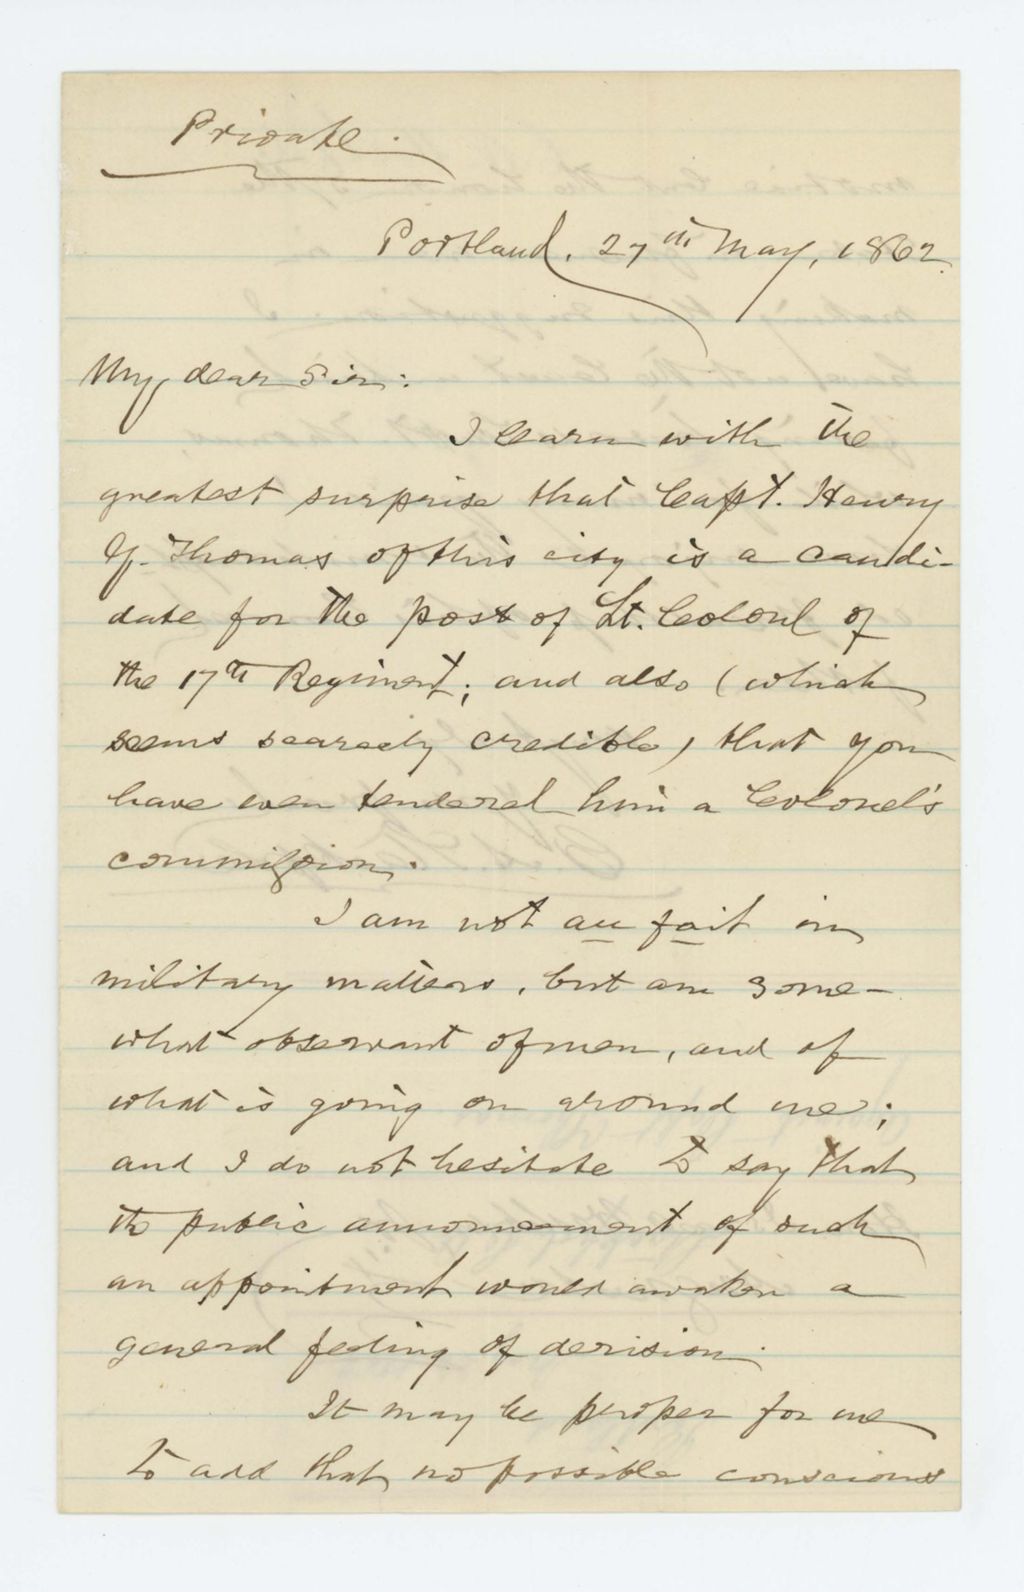 Private.
Portland, 27th May, 1862.
My dear Sir:
I learn with the
greatest surprise that Capt. Henry
G. Thomas of this city is a candi-
date for the post of Lt. Colonl of
the 17th Regiment; and also (which
seems scarcely credible) that you
have even tendered him a Colonel's
commission.
I am not au fait in
military matters, but am some-
what observant of men, and of
what is going on around me;
and I do not hesitate to say that
the public announcement of such
an appointment would awaken a
general feeling of derision.
It may be proper for me
to add that no possible conscious